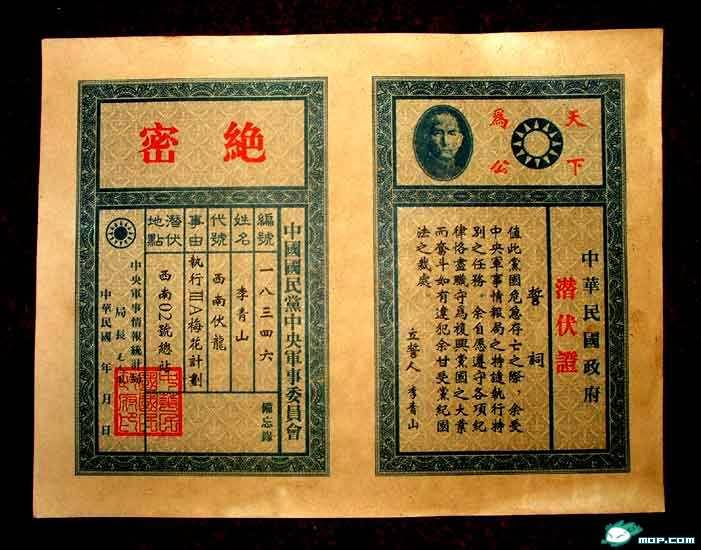 天下
爲公
中華民國政府
潜伏證
誓祠
值此黨國危急存亡之際，余受
中央軍事情報局之特譴執行特
別之任務。余自愿遵守各項紀
律恪盡職守爲復興黨國之大業
而奮斗如有違犯余甘受黨紀國
法之裁處。
立誓人 李青山
絕密
中國國民黨中央軍事委員會
備忘錄
編號 一八三四六
姓名 李青山
代號 西南伏龍
事由 執行ⅢA梅花計劃
潜伏地點 西南02號總社
中央軍事情報統計局
局長
中華民國 年 月 日
MOP.COM